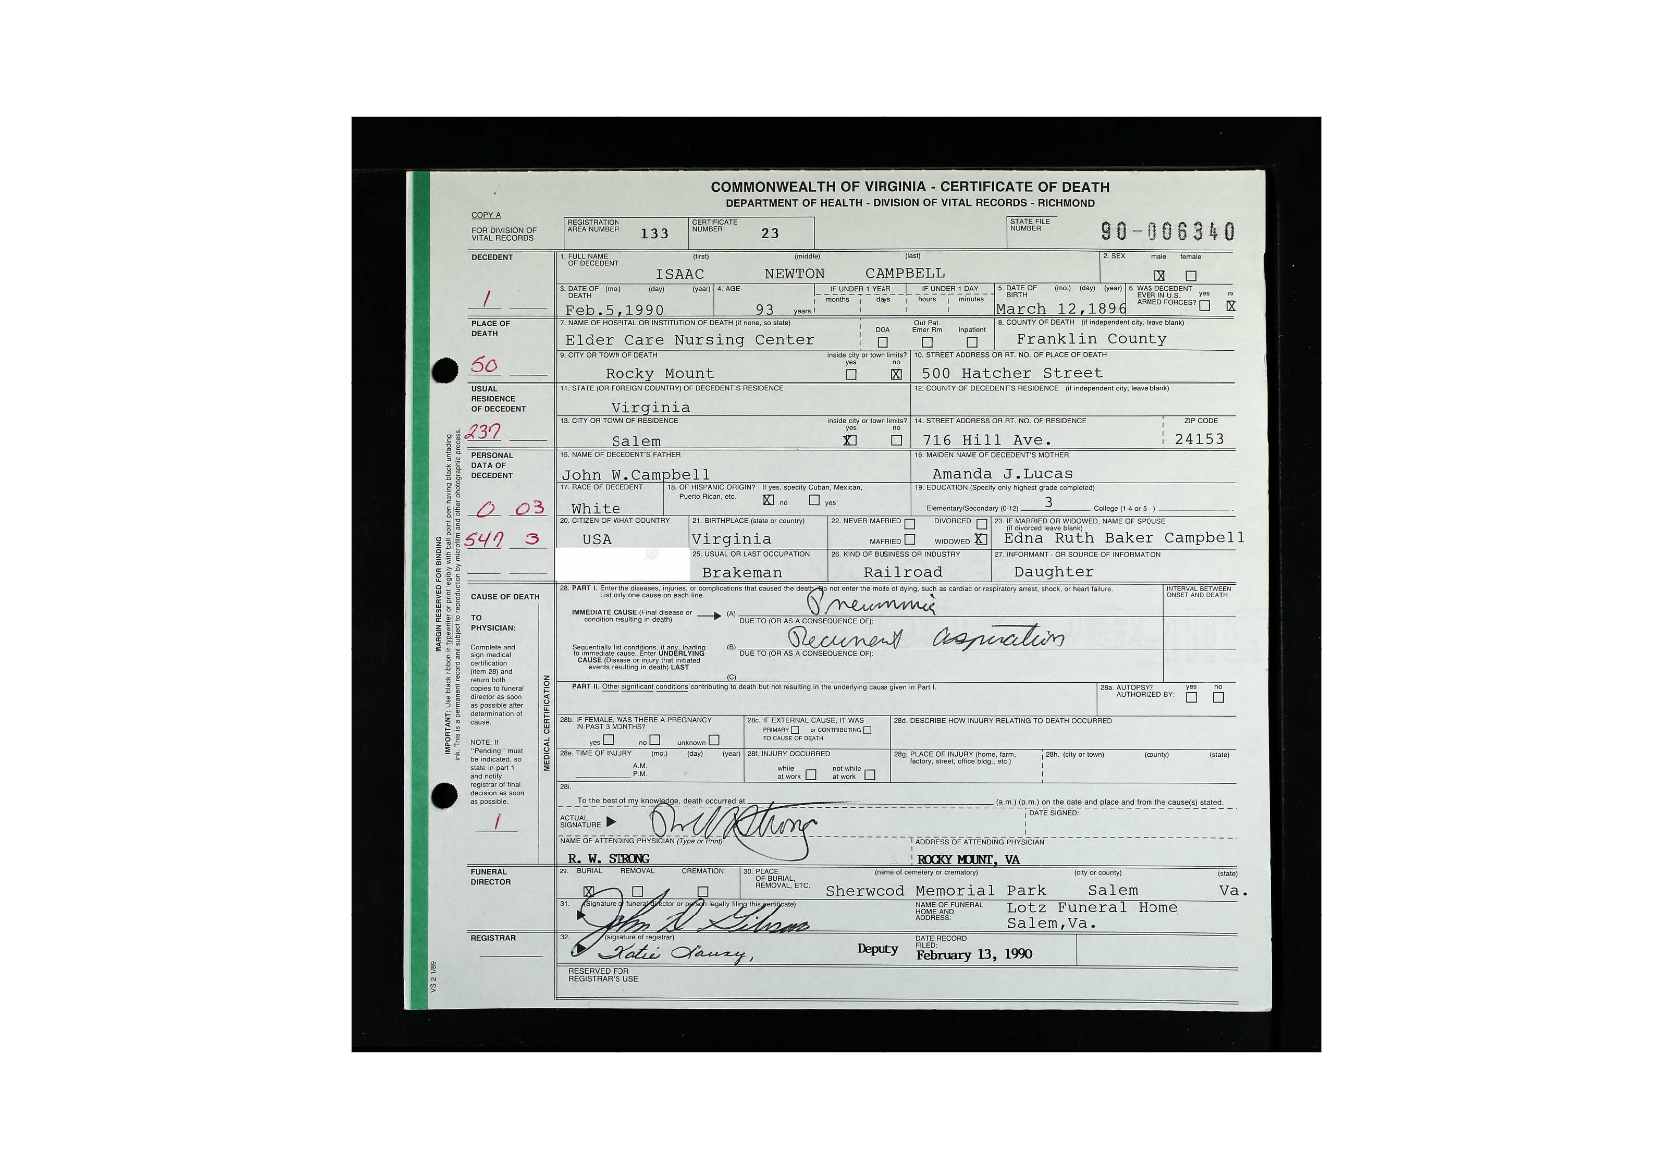 COMMONWEALTH OF VIRGINIA - CERTIFICATE OF DEATH
DEPARTMENT OF HEALTH - DIVISION OF VITAL RECORDS - RICHMOND
COPY A
FOR DIVISION OF VITAL RECORDS
REGISTRATION AREA NUMBER 133
CERTIFICATE NUMBER 23
STATE FILE NUMBER 90-006340
DECEDENT
1. FULL NAME OF DECEDENT (first) (middle) (last)
ISAAC NEWTON CAMPBELL
2. SEX male female
X
1
3. DATE OF DEATH (mo.) (day) (year)
Feb.5,1990
4. AGE
93 years
IF UNDER 1 YEAR
months days
IF UNDER 1 DAY
hours minutes
5. DATE OF BIRTH (mo.) (day) (year)
March 12,1896
6. WAS DECEDENT EVER IN U.S. ARMED FORCES? yes
X
PLACE OF DEATH
50
7. NAME OF HOSPITAL OR INSTITUTION OF DEATH (if none, so state)
Elder Care Nursing Center
DOA
Out Pat. Emer Rm
Inpatient
8. COUNTY OF DEATH (if independent city, leave blank)
Franklin County
9. CITY OR TOWN OF DEATH
Rocky Mount
inside city or town limits?
yes no
X
10. STREET ADDRESS OR RT. NO. OF PLACE OF DEATH
500 Hatcher Street
USUAL RESIDENCE OF DECEDENT
237
11. STATE (OR FOREIGN COUNTRY) OF DECEDENT'S RESIDENCE
Virginia
12. COUNTY OF DECEDENT'S RESIDENCE (if independent city, leave blank)
13. CITY OR TOWN OF RESIDENCE
Salem
inside city or town limits?
yes no
X
14. STREET ADDRESS OR RT. NO. OF RESIDENCE
716 Hill Ave.
ZIP CODE
24153
PERSONAL DATA OF DECEDENT
0 03
547 3
15. NAME OF DECEDENT'S FATHER
John W.Campbell
16. MAIDEN NAME OF DECEDENT'S MOTHER
Amanda J.Lucas
17. RACE OF DECEDENT
White
18. OF HISPANIC ORIGIN? If yes, specify Cuban, Mexican, Puerto Rican, etc.
X no yes
19. EDUCATION (Specify only highest grade completed)
3
Elementary/Secondary (0-12) College (1-4 or 5+)
20. CITIZEN OF WHAT COUNTRY
USA
21. BIRTHPLACE (state or country)
Virginia
22. NEVER MARRIED DIVORCED
MARRIED WIDOWED X
23. IF MARRIED OR WIDOWED, NAME OF SPOUSE
(if divorced leave blank)
Edna Ruth Baker Campbell
25. USUAL OR LAST OCCUPATION
Brakeman
26. KIND OF BUSINESS OR INDUSTRY
Railroad
27. INFORMANT - OR SOURCE OF INFORMATION
Daughter
CAUSE OF DEATH
TO PHYSICIAN:
Complete and
sign medical
certification
(item 28) and
return both
copies to funeral
director as soon
as possible after
determination of
cause.
NOTE: If
"Pending" must
be indicated, so
state in part 1
and notify
registrar of final
decision as soon
as possible.
1
MEDICAL CERTIFICATION
28. PART I. Enter the diseases, injuries, or complications that caused the death. Do not enter the mode of dying, such as cardiac or respiratory arrest, shock, or heart failure.
List only one cause on each line.
INTERVAL BETWEEN ONSET AND DEATH
IMMEDIATE CAUSE (Final disease or condition resulting in death)
(A) Pneumonia
DUE TO (OR AS A CONSEQUENCE OF):
Sequentially list conditions, if any, leading to immediate cause. Enter UNDERLYING CAUSE (Disease or injury that initiated events resulting in death) LAST
(B) Recurrent aspiration
DUE TO (OR AS A CONSEQUENCE OF):
(C)
PART II. Other significant conditions contributing to death but not resulting in the underlying cause given in Part I.
28a. AUTOPSY? yes no
AUTHORIZED BY:
28b. IF FEMALE, WAS THERE A PREGNANCY IN PAST 3 MONTHS?
yes no unknown
28c. IF EXTERNAL CAUSE, IT WAS
PRIMARY or CONTRIBUTING
TO CAUSE OF DEATH
28d. DESCRIBE HOW INJURY RELATING TO DEATH OCCURRED
28e. TIME OF INJURY (mo.) (day) (year)
A.M.
P.M.
28f. INJURY OCCURRED
while at work not while at work
28g. PLACE OF INJURY (home, farm, factory, street, office bldg., etc.)
28h. (city or town) (county) (state)
28i.
To the best of my knowledge, death occurred at (a.m.) (p.m.) on the date and place and from the cause(s) stated.
ACTUAL SIGNATURE
DATE SIGNED:
NAME OF ATTENDING PHYSICIAN (Type or Print)
R. W. STRONG
ADDRESS OF ATTENDING PHYSICIAN
ROCKY MOUNT, VA
FUNERAL DIRECTOR
29. BURIAL REMOVAL CREMATION
X
30. PLACE OF BURIAL, REMOVAL, ETC. (name of cemetery or crematory) (city or county) (state)
Sherwood Memorial Park Salem Va.
31. (Signature of funeral director or person legally filing this certificate)
John D Gibson
NAME OF FUNERAL HOME AND ADDRESS:
Lotz Funeral Home
Salem,Va.
REGISTRAR
32. (signature of registrar)
Katie
Deputy
DATE RECORD FILED:
February 13, 1990
RESERVED FOR REGISTRAR'S USE
VS 2 1/89
MARGIN RESERVED FOR BINDING
IMPORTANT: Use black ribbon in typewriter or print legibly with ball point pen having black unfading
ink. This is a permanent record and subject to reproduction by microfilm and other photographic process.